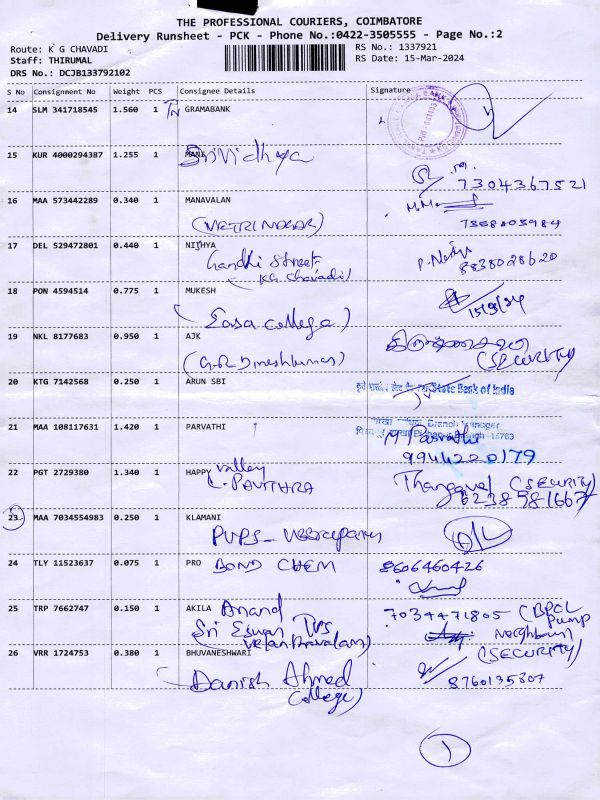 THE PROFESSIONAL COURIERS, COIMBATORE
Delivery Runsheet - PCK - Phone No.:0422-3505555 - Page No.:2
Route: K G CHAVADI
RS No.: 1337921
Staff: THIRUMAL
RS Date: 15-Mar-2024
DRS No.: DCJB133792102
S No Consignment No Weight PCS Consignee Details Signature
14 SLM 341718545 1.560 1 TN GRAMABANK
15 KUR 4000294387 1.255 1 MANI
Srividhya
7304367521
16 MAA 573442289 0.340 1 MANAVALAN
(VETRI NAGAR)
7358803984
17 DEL 529472801 0.440 1 NITHYA
Gandhi Street
KG chavadi)
8838028620
18 PON 4594514 0.775 1 MUKESH
(Easa college)
15/3/24
19 NKL 8177683 0.950 1 AJK
(G.R. Dineshkumar)
(SECURITY)
20 KTG 7142568 0.250 1 ARUN SBI
State Bank of India
21 MAA 108117631 1.420 1 PARVATHI
Branch Manager
M Parvathi
9944220179
22 PGT 2729380 1.340 1 HAPPY valley
L. PAVITHRA
Thangavel (SECURITY)
6238581667
23 MAA 7034554983 0.250 1 KLAMANI
PUPS-
24 TLY 11523637 0.075 1 PRO BOND CHEM
8606460426
25 TRP 7662747 0.150 1 AKILA Anand
Sri Eswari TVS
7034471805 (BPCL Pump
26 VRR 1724753 0.380 1 BHUVANESHWARI
Danish Ahmed
College)
(SECURITY)
8760135307
1